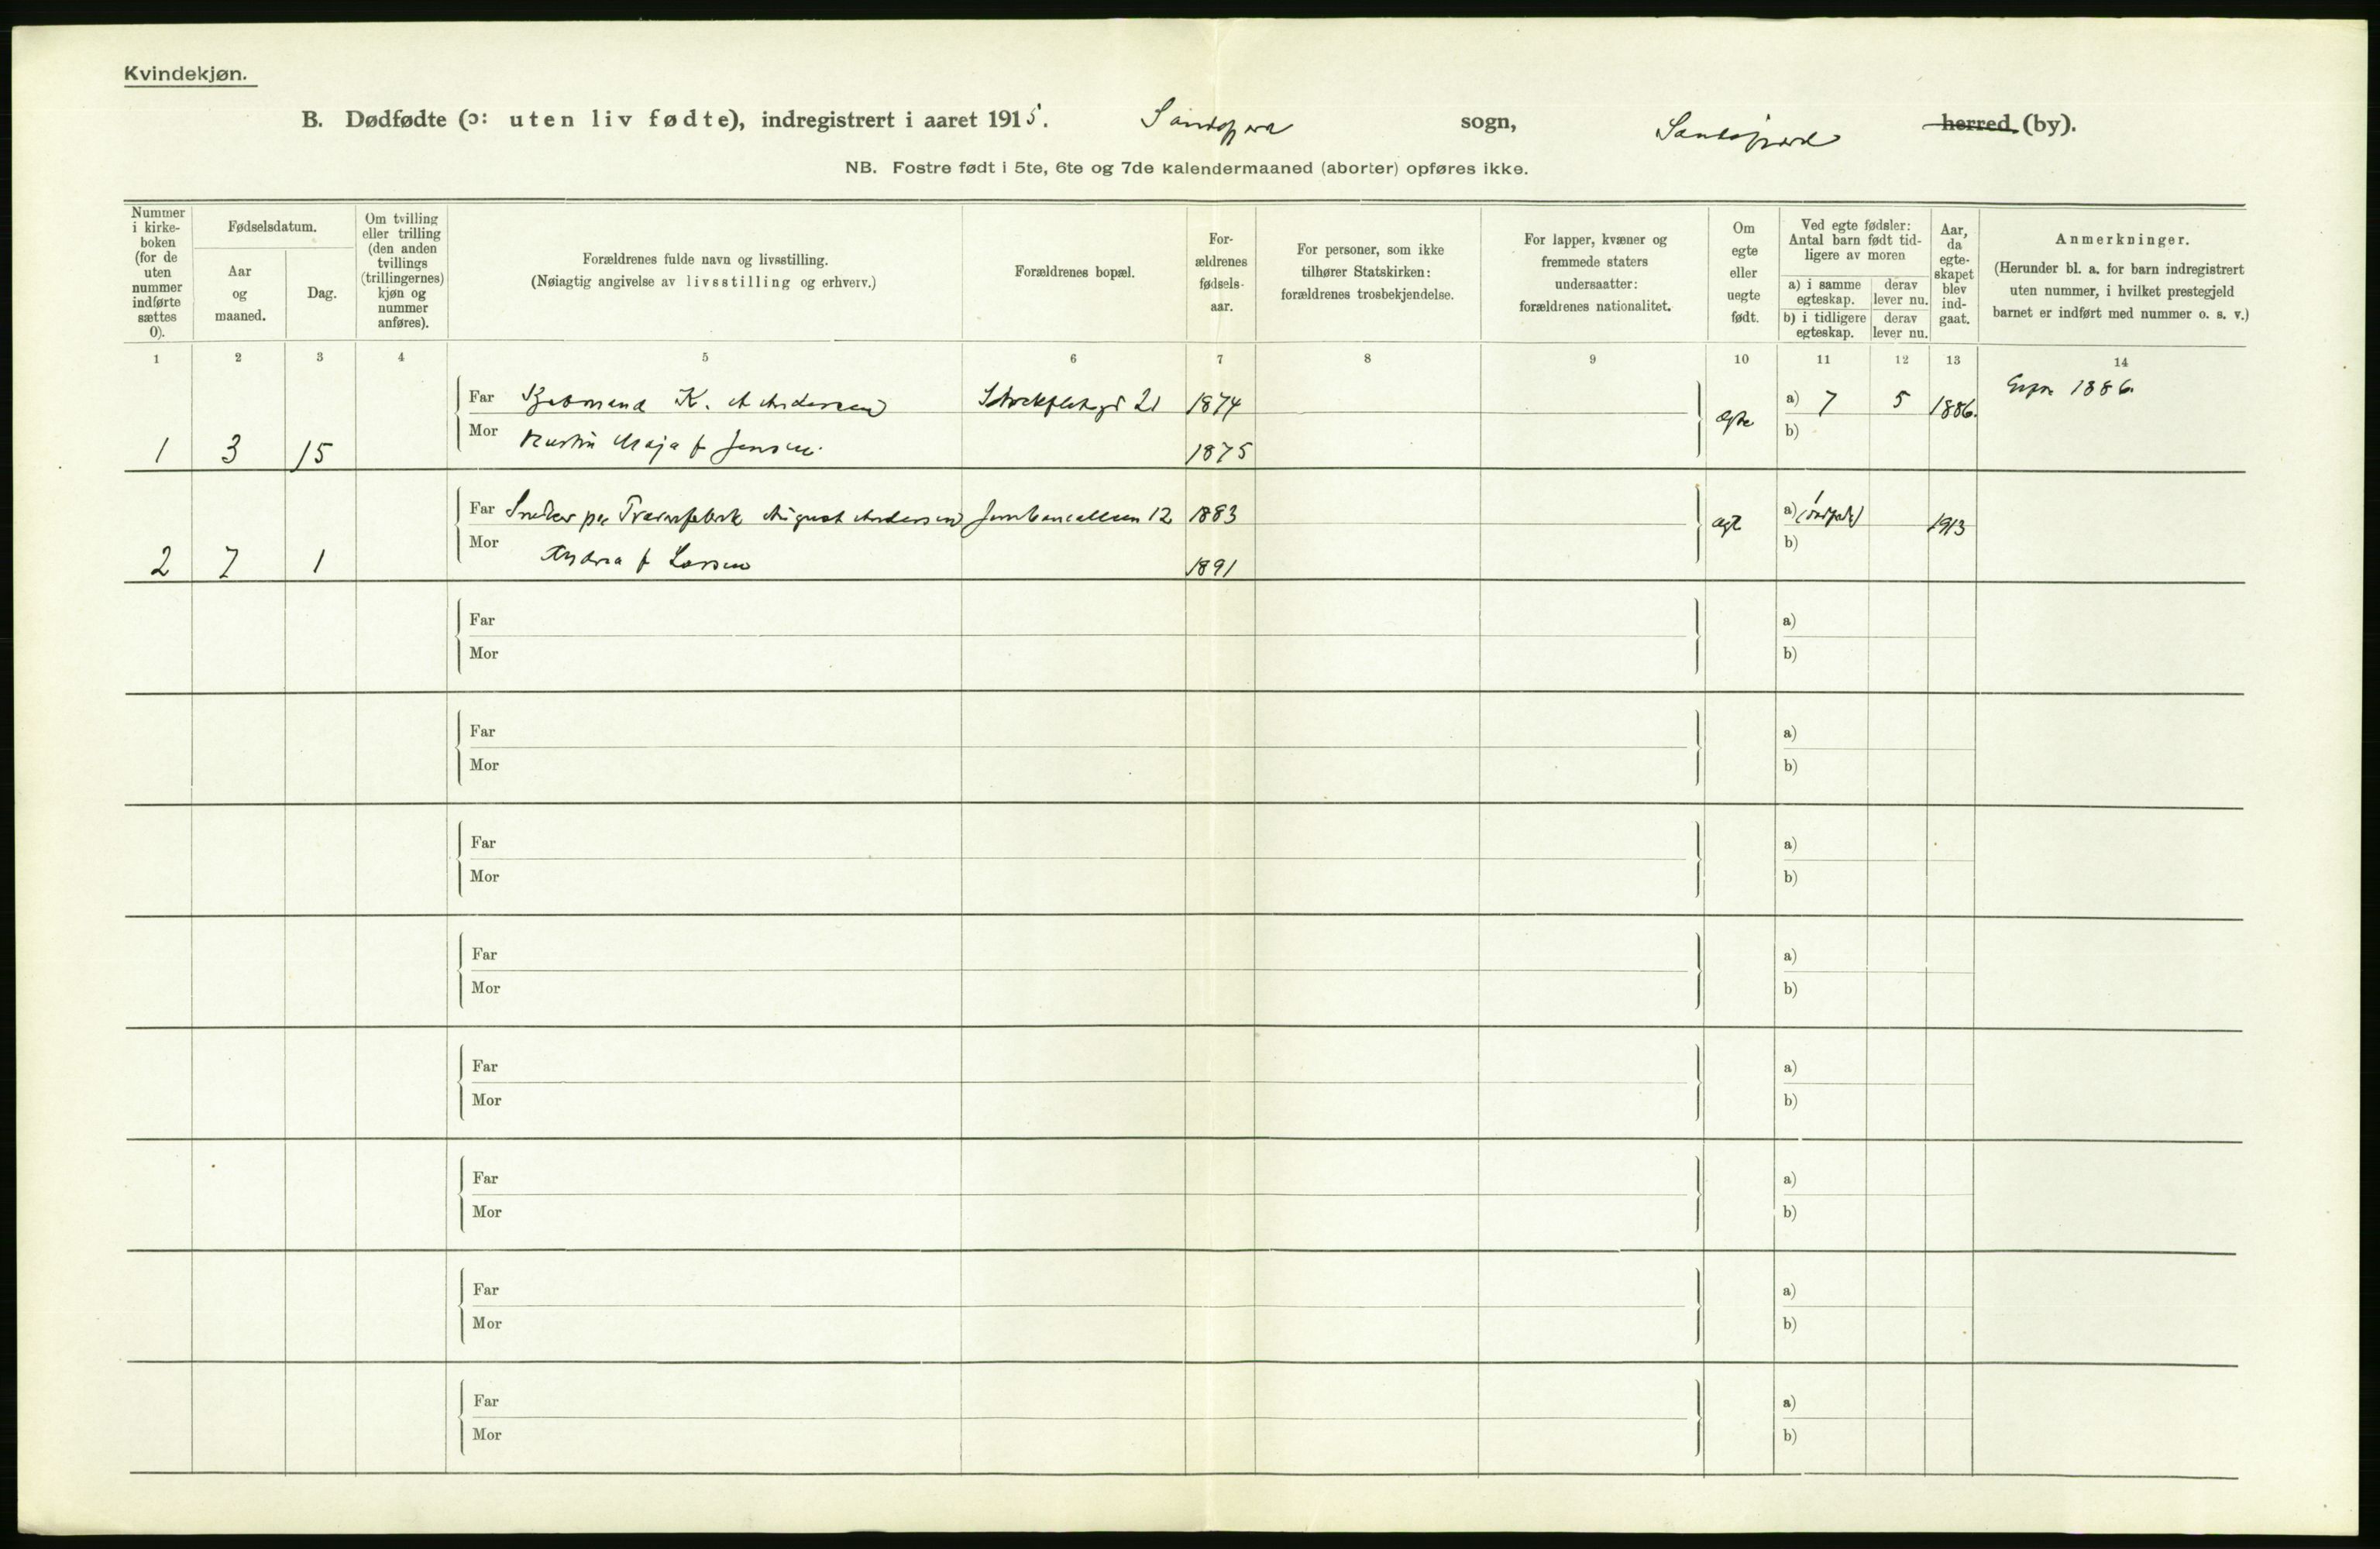 Kvindekjøn.
B. Dødfødte (ɔ: uten liv fødte), indregistrert i aaret 1915. Sandefjord sogn, Sandefjord herred (by).
NB. Fostre født i 5te, 6te og 7de kalendermaaned (aborter) opføres ikke.
Nummer i kirke-boken (for de uten nummer indførte sættes 0).
Fødselsdatum.
Aar og maaned.
Dag.
Om tvilling eller trilling (den anden tvillings (trillingernes) kjøn og nummer anføres).
Forældrenes fulde navn og livsstilling.
(Nøiagtig angivelse av livsstilling og erhverv.)
Forældrenes bopæl.
For-ældrenes fødsels-aar.
For personer, som ikke tilhører Statskirken: forældrenes trosbekjendelse.
For lapper, kvæner og fremmede staters undersaatter: forældrenes nationalitet.
Om egte eller uegte født.
Ved egte fødsler: Antal barn født tid-ligere av moren
a) i samme egteskap.
derav lever nu.
b) i tidligere egteskap.
derav lever nu.
Aar, da egte-skapet blev ind-gaat.
Anmerkninger.
(Herunder bl. a. for barn indregistrert uten nummer, i hvilket prestegjeld barnet er indført med nummer o. s. v.)
1 2 3 4 5 6 7 8 9 10 11 12 13 14
Far K. A Andersen 21 1874 egte a) 7 5 1886. 1886
Mor Maja f Jensen. 1875 b)
1 3 15
Far August Andersen 12 1883 egte a) 1 1913
Mor f Larsen 1891 b)
2 7 1
Far a)
Mor b)
Far a)
Mor b)
Far a)
Mor b)
Far a)
Mor b)
Far a)
Mor b)
Far a)
Mor b)
Far a)
Mor b)
Far a)
Mor b)